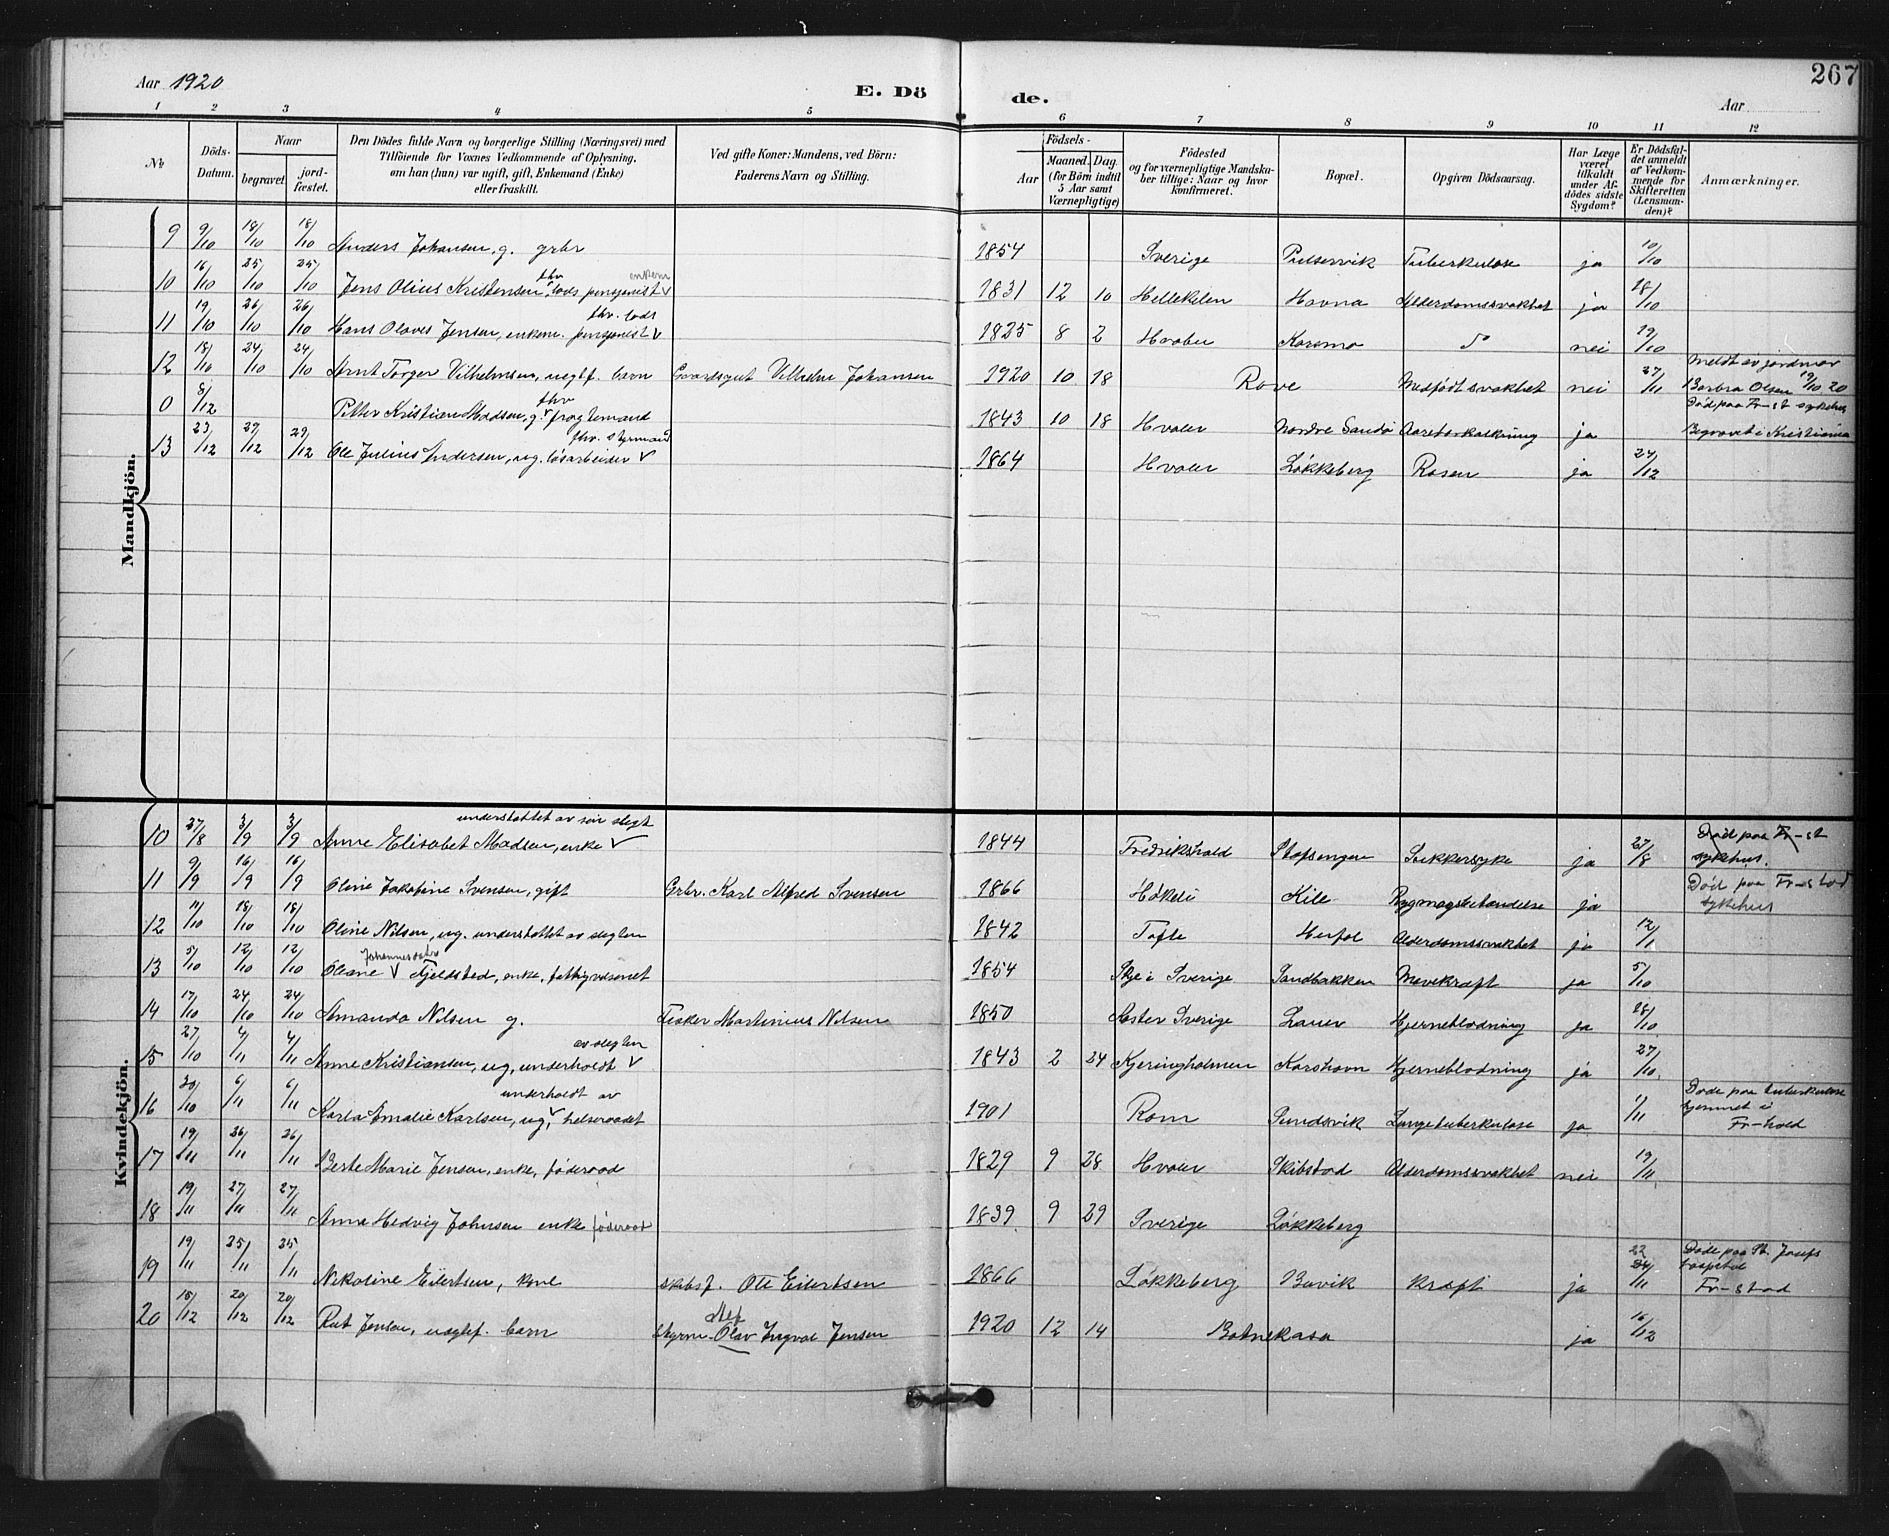 267
Aar 1920 E. Dö de. Aar
1 2 3 4 5 6 7 8 9 10 11 12
No. Döds-Datum. Naar begravet. jordfæstet. Den Dödes fulde Navn og borgerlige Stilling (Næringsvei) med Tilföiende for Voxnes Vedkommende af Oplysning, om han (hun) var ugift, gift, Enkemand (Enke) eller fraskilt. Ved gifte Koner: Mandens, ved Börn: Faderens Navn og Stilling. Födsels- Aar Maaned. Dag. (for Börn indtil 5 Aar samt Værnepligtige) Födested og for værnepligtige Mandskaber tillige: Naar og hvor konfirmeret. Bopæl. Opgiven Dödsaarsag. Har Læge været tilkaldt under Afdödes sidste Sygdom? Er Dödsfaldet anmeldt af Vedkommende for Skifteretten (Lensmanden)? Anmærkninger.
Mandkjön.
9 9/10 18/10 18/10 Anders Johansen, g. grbr 1854 Sverige Pulservik Tuberkulose ja 10/10
10 16/10 25/10 25/10 Jens Olius Kristensen, fhv lods pensjonist enkem 1831 12 10 Hellekilen Havna Alderdomssvakhet ja 18/10
11 19/10 26/10 26/10 Hans Olaves Jensen, enkem. fhv. lods pensjonist 1825 8 2 Hvaler Korsmo do nei 19/10
12 18/10 24/10 24/10 Arnt Torger Vilhelmsen, uegtf. barn Gaardsgut Vilhelm Johansen 1920 10 18 Rove Medfødt svakhet nei 27/11 Meldt av jordmor Barbra Olsen 19/10 20
0 8/12 Petter Kristian Madsen, g. fhv fragtemand 1843 10 18 Hvaler Nordre Sandø Aareforkalkning ja Død paa Fr-st sykehus Begravet i Kristiania
13 23/12 29/12 29/12 Ole Julius Andersen, ug. løsarbeider fhv. styrmand 1864 Hvaler Løkkeberg Rosen ja 24/12
Kvindekjön.
10 27/8 3/9 3/9 Anne Elisabet Madsen, enke understøttet av sin slegt 1844 Fredrikshald Sukkersyke ja 27/8 Død paa Fr-st sykehus.
11 9/9 16/9 16/9 Oline Jakobine Svensen, gift Grbr. Karl Alfred Svensen 1866 Kile Rygmargsbetændelse ja Død paa Fr-stad sykehus
12 11/10 18/10 18/10 Oline Nilsen, ug. understøttet av slegten 1842 Tofte Herføl Alderdomssvakhet ja
13 5/10 12/10 12/10 Oleane Johannesdatr Fjeldstad, enke, fattigvæsenet 1854 Skje i Sverige Sandbakken Mavekræft ja 5/10
14 17/10 24/10 24/10 Amanda Nilsen g. Fisker Martinius Nilsen 1850 Sverige Lauer Hjerneblødning ja 18/10
15 27/10 4/11 4/11 Anne Kristiansen, ug, underholdt av slegten 1843 2 24 Kjeringholmen Korshavn Hjerneblødning ja 27/10
16 30/10 6/11 6/11 Karla Amalie Karlsen, ug, underholdt av helseraadet 1901 Rom Sundsvik Lungetuberkulose ja 1/11 Døde paa tuberkulose hjemmet i Fr-hald
17 19/11 26/11 26/11 Berte Marie Jensen, enke, føderaad 1829 9 28 Hvaler Skibstad Alderdomssvakhet nei 19/11
18 19/11 27/11 27/11 Anna Hedvig Johnsen enke føderaad 1839 9 29 Sverige Løkkeberg
19 19/11 25/11 25/11 Nikoline Eilertsen, kone skibsf. Ole Eilertsen 1866 Løkkeberg Bavik kræft ja 22 24/11 Døde paa St. Josefs hospital Fr-stad
20 15/12 20/12 20/12 Rut Jensen, uegtf. barn Styrm. Olav Ingval Jensen 1920 12 14 Botnekasa ja 16/12